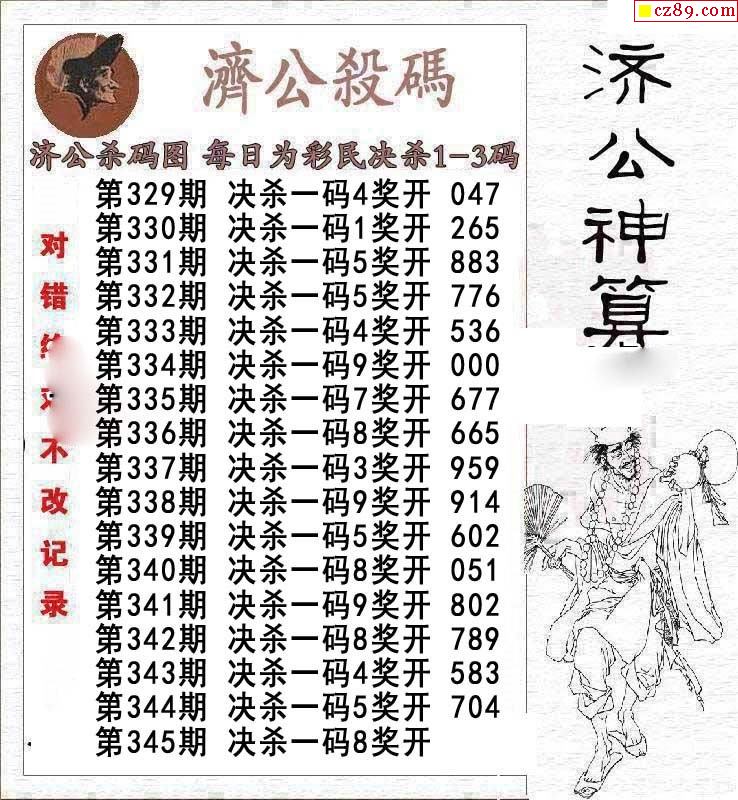 cz89.com
濟公殺碼
济公杀码图 每日为彩民决杀1-3码
第329期 决杀一码4奖开 047
第330期 决杀一码1奖开 265
第331期 决杀一码5奖开 883
第332期 决杀一码5奖开 776
第333期 决杀一码4奖开 536
第334期 决杀一码9奖开 000
第335期 决杀一码7奖开 677
第336期 决杀一码8奖开 665
第337期 决杀一码3奖开 959
第338期 决杀一码9奖开 914
第339期 决杀一码5奖开 602
第340期 决杀一码8奖开 051
第341期 决杀一码9奖开 802
第342期 决杀一码8奖开 789
第343期 决杀一码4奖开 583
第344期 决杀一码5奖开 704
第345期 决杀一码8奖开
对错绝对不改记录
济公神算